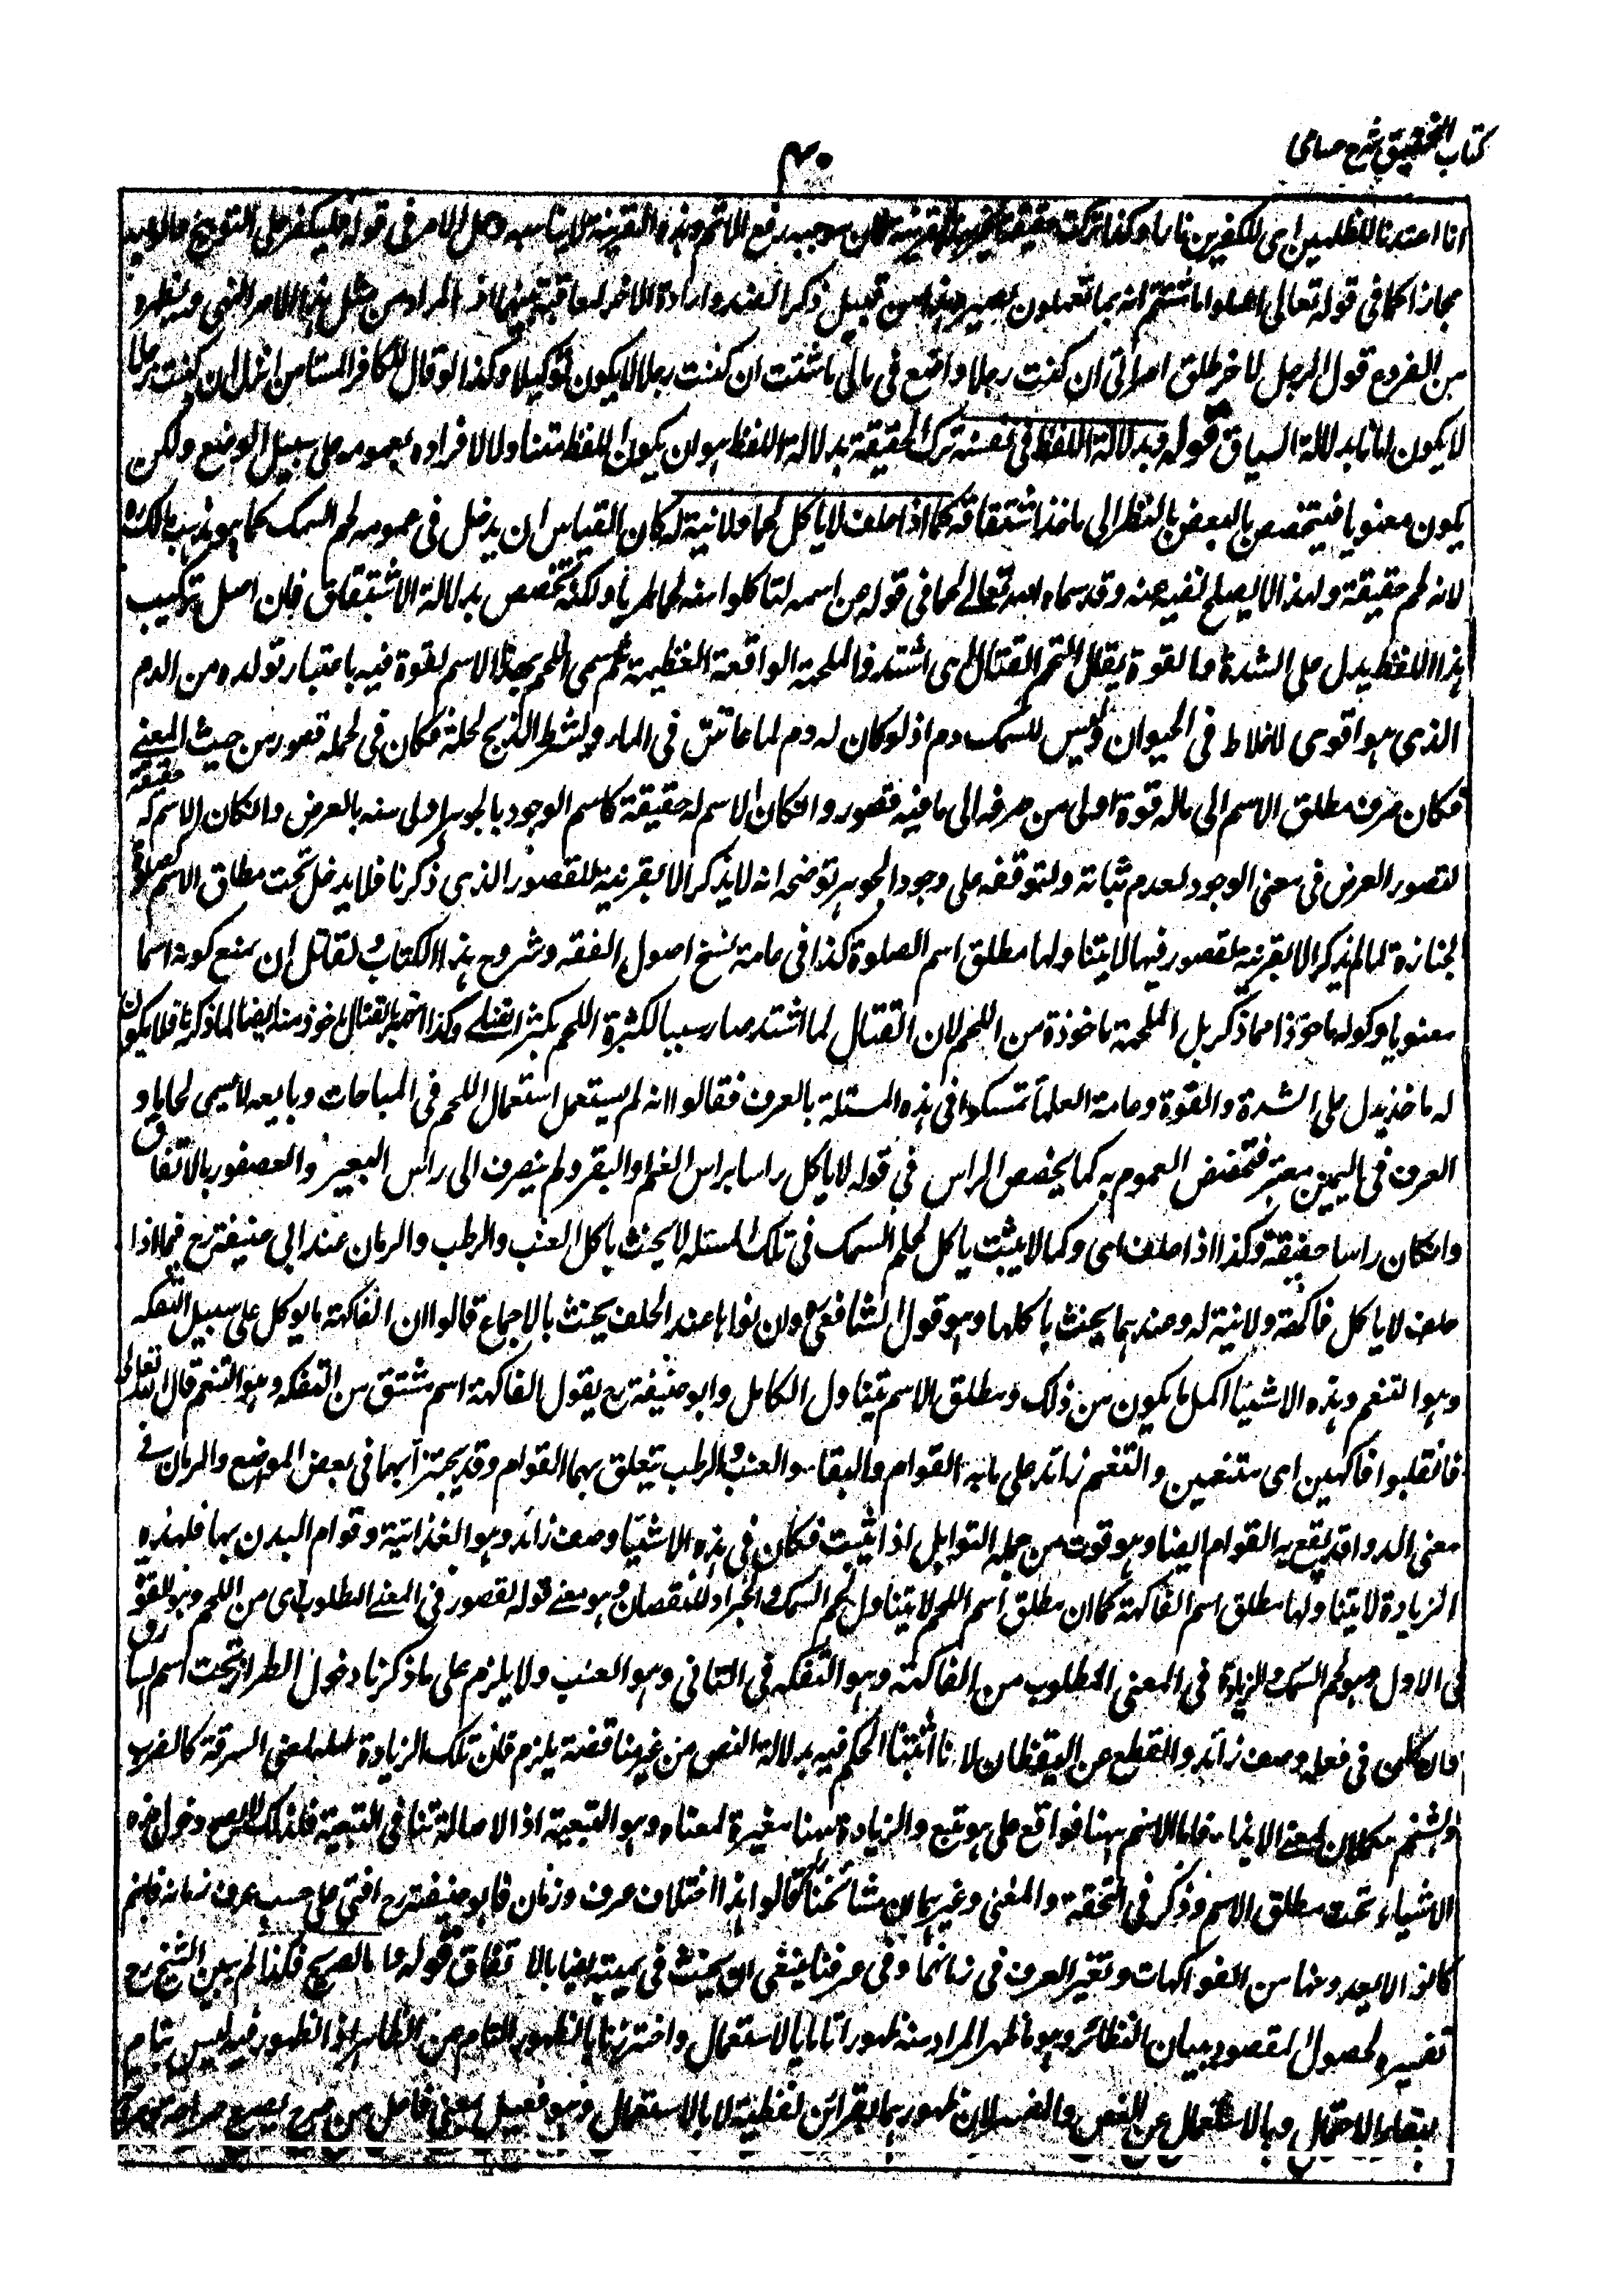 كتاب التحقيق شرح حسامى
٤٠
انا اعتدنا للظلمين اى للكفرين نارا وكذا تركت حقيقة الامر بهذه القرينة لان موجبه رفع الاثم وهذه القرينة لا تناسبه وحمل الامر فى قوله فليكفر على التوبيخ والوعيد
مجازا كما فى قوله تعالى اعملوا ما شئتم انه بما تعملون بصير وهذا من قبيل ذكر الضد وارادة الاخر لمعاقبة بينهما اذ المراد من مثل هذا الامر النهى ونظيره
من الفروع قول الرجل لاخر طلق امرأتى ان كنت رجلا واصنع فى مالى ما شئت ان كنت رجلا لا يكون توكيلا وكذا لو قال للكافر المستامن انزل ان كنت رجلا
لا يكون امانا بدلالة السياق قوله وبدلالة اللفظ فى نفسه ترك الحقيقة بدلالة اللفظ هو ان يكون اللفظ متناولا لافراده بعمومه على سبيل الوضع ولكن
يكون معنويا فيتخصص بالبعض بالنظر الى ماخذ اشتقاقه كما اذا حلف لا ياكل لحما ولا نية له كان القياس ان يدخل فى عمومه لحم السمك كما هو مذهب مالك ره
لانه لحم حقيقة ولهذا لا يصلح نفيه عنه وقد سماه الله تعالى لحما فى قوله عز اسمه لتاكلوا منه لحما طريا ولكنه تخصص بدلالة الاشتقاق فان اصل تركيب
هذا اللفظ يدل على الشدة والقوة يقال التحم القتال اى اشتد والملحمة الواقعة العظيمة ثم سمى اللحم بهذا الاسم لقوة فيه باعتبار تولده من الدم
الذى هو اقوى الاخلاط فى الحيوان وليس للسمك دم اذ لو كان له دم لما عاش فى الماء ولشرط الذبح لحله فكان فى لحمه قصور من حيث المعنى
فكان صرف مطلق الاسم الى ماله قوة اولى من صرفه الى ما فيه قصور وانكان الاسم له حقيقة كاسم الوجود بالجوهر اولى منه بالعرض وانكان الاسم له حقيقة
لقصور العرض فى معنى الوجود لعدم ثباته ولتوقفه على وجود الجوهر توضحه انه لا يذكر الا بقرينة للقصور الذى ذكرنا فلا يدخل تحت مطلق الاسم كصلوة
الجنازة لما لم يذكر الا بقرينة لقصور فيها لا يتناولها مطلق اسم الصلوة كذا فى عامة نسخ اصول الفقه وشروح هذا الكتاب ولقائل ان يمنع كونه اسما
معنويا وكونه ماخوذا مما ذكر بل الملحمة ماخوذة من اللحم لان القتال لما اشتد صار سببا لكثرة اللحم بكثرة القتلى وكذا التحم القتال ماخوذ منه ايضا لما ذكرنا فلا يكون
له ماخذ يدل على الشدة والقوة وعامة العلماء تمسكوا فى هذه المسئلة بالعرف فقالوا انه لم يستعمل استعمال اللحم فى المباحات وبايعه لا يسمى لحاما و
العرف فى اليمين معتبر فتخصص العموم به كما يخصص الراس فى قوله لا ياكل راسا براس الغنم والبقر ولم ينصرف الى راس البعير والعصفور بالاتفاق
وانكان راسا حقيقة وكذا اذا حلف اى وكما لا يثبت ياكل لحم السمك فى تلك المسئله لا يحنث باكل العنب والرطب والرمان عند ابى حنيفة رح فيما اذا
حلف لا ياكل فاكهة ولا نية له وعندهما يحنث باكلها وهو قول الشافعى رح وان نواها عند الحلف يحنث بالاجماع قالوا ان الفاكهة ما يوكل على سبيل التفكه
وهو التنعم وهذه الاشياء اكمل ما يكون من ذلك ومطلق الاسم يتناول الكامل وابو حنيفة رح يقول الفاكهة اسم مشتق من التفكه وهو التنعم قال الله تعالى
فانقلبوا فاكهين اى متنعمين والتنعم زائد على ما به القوام والبقاء والعنب والرطب يتعلق بهما القوام وقد يجتزأ بهما فى بعض المواضع والرمان فى
معنى الدواء قد يقع به القوام ايضا وهو قوت من جملة التوابل اذا يبست فكان فى هذه الاشياء وصف زائد وهو الغذائية وقوام البدن بها فلهذه
الزيادة لا يتناولها مطلق اسم الفاكهة كما ان مطلق اسم اللحم لا يتناول لحم السمك والجراد للنقصان وهو معنى قوله لقصور فى المعنى المطلوب اى من اللحم وهو القوة
فى الاول وهو لحم السمك والزيادة فى المعنى المطلوب من الفاكهة وهو التفكه فى الثانى وهو العنب ولا يلزم على ما ذكرنا دخول الطرار تحت اسم السارق
وان كان فى فعله وصف زائد والقطع عن اليقظان لانا اثبتنا الحكم فيه بدلالة النص من غير مناقضة يلزم فان تلك الزيادة مكملة لمعنى السرقة كالضرب
والشتم مكملان لمعنى الايذاء فاما الاسم ههنا فواقع على ما هو تبع والزيادة ههنا مغيرة لمعناه وهو التبعية اذ الاصالة تنافى التبعية فلذلك لا يصح دخول هذه
الاشياء تحت مطلق الاسم وذكر فى التحفة والمغنى وغيرهما ان مشائخنا قالوا هذا اختلاف عرف وزمان فابو حنيفة رح افتى على حسب عرف زمانه فانهم
كانوا لا يعدونها من الفواكهات وتغير العرف فى زمانهما وفى عرفنا ينبغى ان يحنث فى يمينه ايضا بالاتفاق قوله واما الصريح فكذا لم يبين الشيخ رح
تفسيره لحصول المقصود ببيان النظائر وهو ما ظهر المراد منه ظهورا تاما بالاستعمال واحترزنا بالظهور التام عن الظاهر اذ الظهور فيه ليس بتام
لبقاء الاحتمال وبالاستعمال عن النص والمفسر لان ظهورهما بقرائن لفظية لا بالاستعمال وهو فعيل بمعنى فاعل من صرح يصرح صراحة